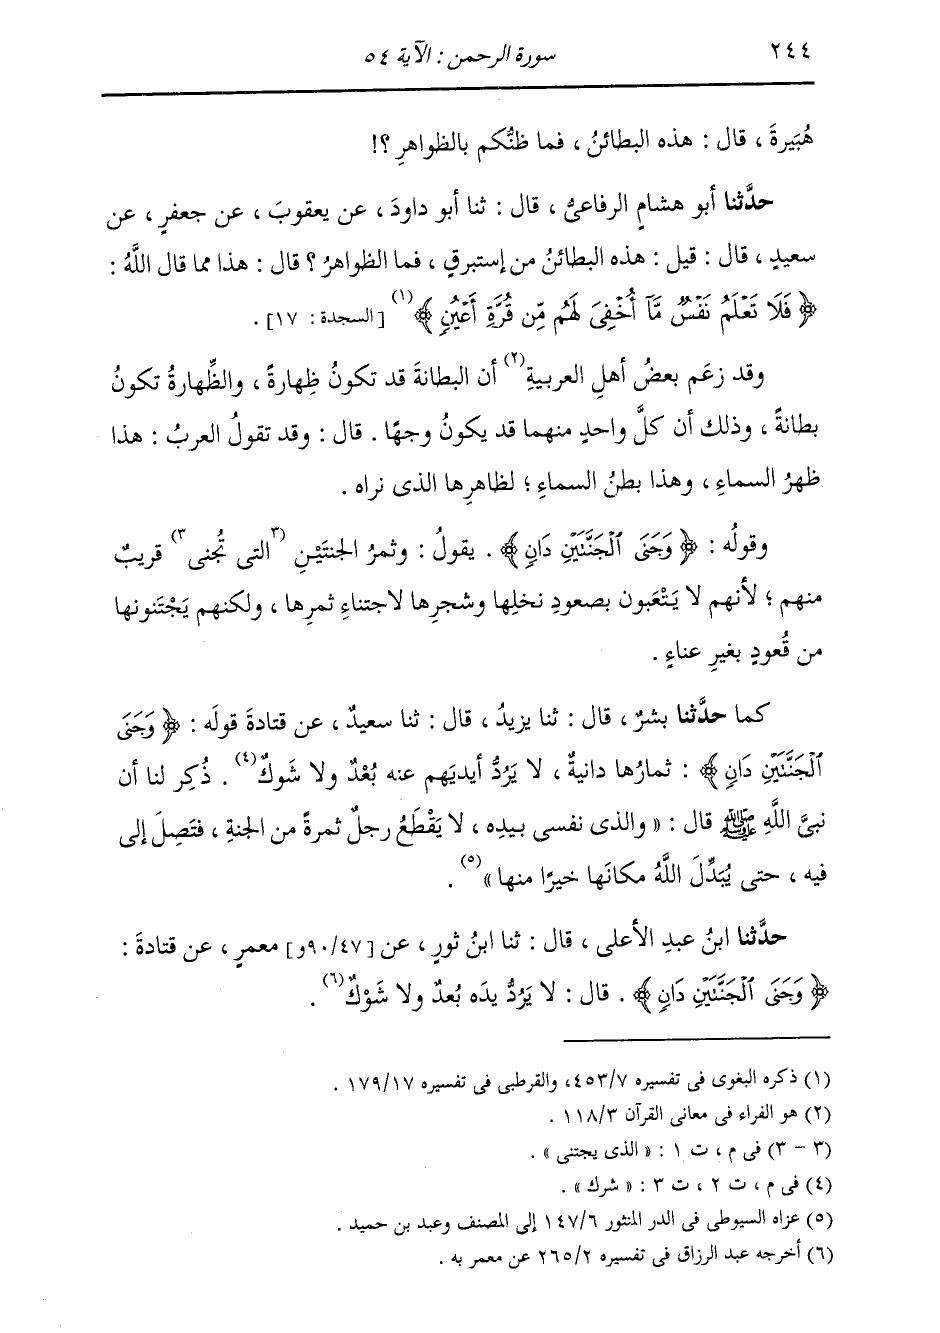 ٢٤٤
سورة الرحمن : الآية ٥٤
هُبَيرةَ ، قال : هذه البطائنُ ، فما ظنُّكم بالظواهرِ ؟!
حدَّثنا أبو هشامٍ الرفاعىُّ ، قال : ثنا أبو داودَ ، عن يعقوبَ ، عن جعفرٍ ، عن
سعيدٍ ، قال : قيل : هذه البطائنُ من إستبرقٍ ، فما الظواهرُ ؟ قال : هذا مما قال اللَّهُ :
﴿ فَلَا تَعْلَمُ نَفْسٌ مَّآ أُخْفِىَ لَهُم مِّن قُرَّةِ أَعْيُنٍ ﴾(١) [السجدة : ١٧] .
وقد زعَم بعضُ أهلِ العربيةِ(٢) أن البطانةَ قد تكونُ ظِهارةً ، والظِّهارةُ تكونُ
بطانةً ، وذلك أن كلَّ واحدٍ منهما قد يكونُ وجهًا . قال : وقد تقولُ العربُ : هذا
ظهرُ السماءِ ، وهذا بطنُ السماءِ ؛ لظاهرِها الذى نراه .
وقولُه : ﴿ وَجَنَى ٱلْجَنَّتَيْنِ دَانٍ ﴾ . يقولُ : وثمرُ الجنتَيْنِ (٣التى تُجنى٣) قريبٌ
منهم ؛ لأنهم لا يَتْعَبون بصعودِ نخلِها وشجرِها لاجتناءِ ثمرِها ، ولكنهم يَجْتَنونها
من قُعودٍ بغيرِ عناءٍ .
كما حدَّثنا بشرٌ ، قال : ثنا يزيدُ ، قال : ثنا سعيدٌ ، عن قتادةَ قولَه : ﴿ وَجَنَى
ٱلْجَنَّتَيْنِ دَانٍ ﴾ : ثمارُها دانيةٌ ، لا يَرُدُّ أيديَهم عنه بُعْدٌ ولا شَوكٌ(٤) . ذُكِر لنا أن
نبىَّ اللَّهِ ﷺ قال : « والذى نفسى بيدِه ، لا يَقْطَعُ رجلٌ ثمرةً من الجنةِ ، فتَصِلَ إلى
فيه ، حتى يُبَدِّلَ اللَّهُ مكانَها خيرًا منها »(٥) .
حدَّثنا ابنُ عبدِ الأعلى ، قال : ثنا ابنُ ثورٍ ، عن [٩٠/٤٧و] معمرٍ ، عن قتادةَ :
﴿ وَجَنَى ٱلْجَنَّتَيْنِ دَانٍ ﴾ . قال : لا يَرُدُّ يدَه بُعدٌ ولا شَوْكٌ(٦) .
(١) ذكره البغوى فى تفسيره ٤٥٣/٧، والقرطبى فى تفسيره ١٧٩/١٧ .
(٢) هو الفراء فى معانى القرآن ١١٨/٣ .
(٣ - ٣) فى م ، ت ١ : « الذى يجتنى » .
(٤) فى م ، ت ٢ ، ت ٣ : « شرك » .
(٥) عزاه السيوطى فى الدر المنثور ١٤٧/٦ إلى المصنف وعبد بن حميد .
(٦) أخرجه عبد الرزاق فى تفسيره ٢٦٥/٢ عن معمر به .